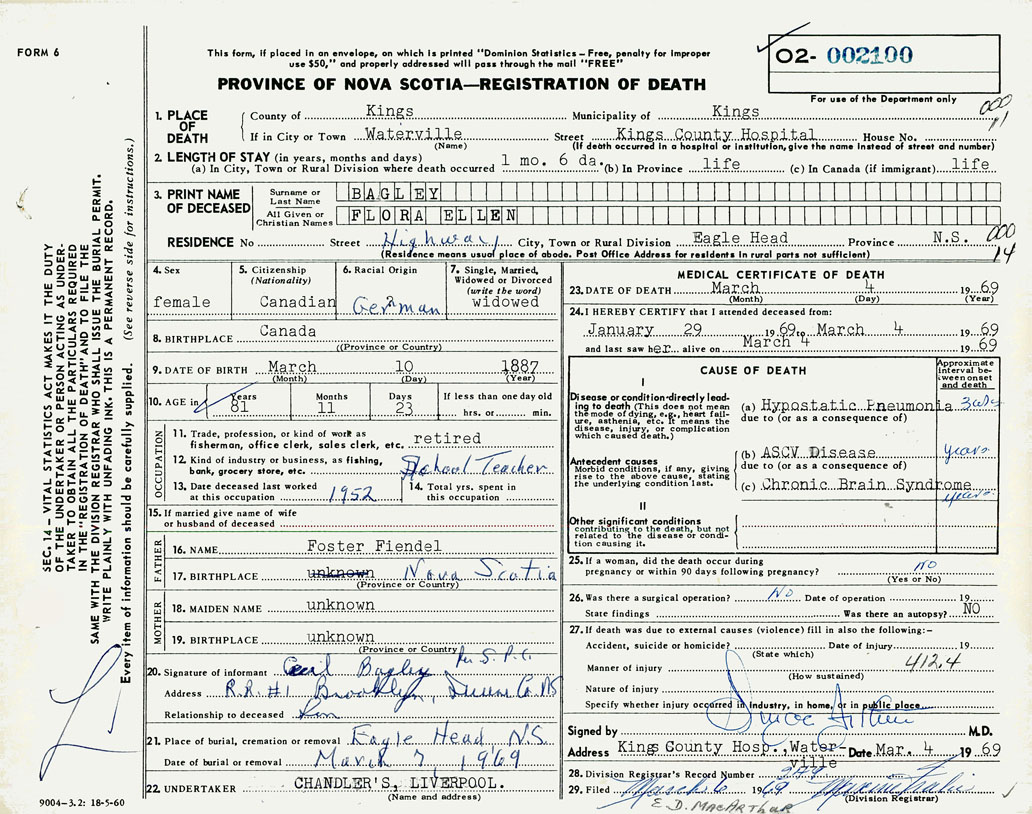 FORM 6
This form, if placed in an envelope, on which is printed "Dominion Statistics – Free, penalty for improper
use $50," and properly addressed will pass through the mail "FREE"
02- 002100
For use of the Department only
PROVINCE OF NOVA SCOTIA—REGISTRATION OF DEATH
SEC. 14 – VITAL STATISTICS ACT MAKES IT THE DUTY
OF THE UNDERTAKER OR PERSON ACTING AS UNDER-
TAKER TO OBTAIN ALL THE PARTICULARS REQUIRED
IN THE "REGISTRATION OF DEATH" AND TO FILE THE
SAME WITH THE DIVISION REGISTRAR WHO SHALL ISSUE THE BURIAL PERMIT.
WRITE PLAINLY WITH UNFADING INK. THIS IS A PERMANENT RECORD.
Every item of information should be carefully supplied. (See reverse side for instructions.)
1. PLACE OF DEATH
County of Kings Municipality of Kings
000
If in City or Town Waterville Street Kings County Hospital House No.
(Name) (If death occurred in a hospital or institution, give the name instead of street and number)
2. LENGTH OF STAY (in years, months and days)
(a) In City, Town or Rural Division where death occurred 1 mo. 6 da. (b) In Province life (c) In Canada (if immigrant) life
3. PRINT NAME OF DECEASED
Surname or Last Name BAGLEY
All Given or Christian Names FLORA ELLEN
RESIDENCE No Street Highway City, Town or Rural Division Eagle Head Province N.S. 000
14
(Residence means usual place of abode. Post Office Address for residents in rural parts not sufficient)
4. Sex
female
5. Citizenship
(Nationality)
Canadian
6. Racial Origin
German
7. Single, Married,
Widowed or Divorced
(write the word)
widowed
8. BIRTHPLACE Canada
((Province or Country)
9. DATE OF BIRTH March 10 1887
(Month) (Day) (Year)
10. AGE in Years Months Days If less than one day old
81 11 23 hrs. or min.
OCCUPATION
11. Trade, profession, or kind of work as
fisherman, office clerk, sales clerk, etc. retired
12. Kind of industry or business, as fishing,
bank, grocery store, etc. School Teacher
13. Date deceased last worked
at this occupation 1952
14. Total yrs. spent in
this occupation
15. If married give name of wife
or husband of deceased
FATHER
16. NAME Foster Fiendel
17. BIRTHPLACE unknown Nova Scotia
(Province or Country)
MOTHER
18. MAIDEN NAME unknown
19. BIRTHPLACE unknown
(Province or Country)
20. Signature of informant Cecil Bagley Per S.P.C.
Address R.R. #1 Brooklyn, Co. NS
Relationship to deceased
21. Place of burial, cremation or removal Eagle Head N.S.
Date of burial or removal March 7, 1969
22. UNDERTAKER CHANDLER'S, LIVERPOOL.
(Name and address)
9004–3.2: 18-5-60
MEDICAL CERTIFICATE OF DEATH
23. DATE OF DEATH March 4 1969
(Month) (Day) (Year)
24. I HEREBY CERTIFY that I attended deceased from:
January 29 1969 to March 4 1969
and last saw her alive on March 4 1969
CAUSE OF DEATH
Approximate
interval be-
tween onset
and death
I
Disease or condition directly lead-
ing to death (This does not mean
the mode of dying, e.g., heart fail-
ure, asthenia, etc. It means the
disease, injury, or complication
which caused death.)
(a) Hypostatic Pneumonia
due to (or as a consequence of)
Antecedent causes
Morbid conditions, if any, giving
rise to the above cause, stating
the underlying condition last.
(b) ASCV Disease years
due to (or as a consequence of)
(c) Chronic Brain Syndrome
years
II
Other significant conditions
contributing to the death, but not
related to the disease or condi-
tion causing it.
25. If a woman, did the death occur during
pregnancy or within 90 days following pregnancy? NO
(Yes or No)
26. Was there a surgical operation? NO Date of operation 19
State findings Was there an autopsy? NO
27. If death was due to external causes (violence) fill in also the following:–
Accident, suicide or homicide? Date of injury 19
(State which)
412.4
Manner of injury
(How sustained)
Nature of injury
Specify whether injury occurred in industry, in home, or in public place
Signed by M.D.
Address Kings County Hosp., Water-
ville
Date Mar. 4 1969
28. Division Registrar's Record Number
29. Filed March 6 1969
(Division Registrar)
E. D. MacArthur